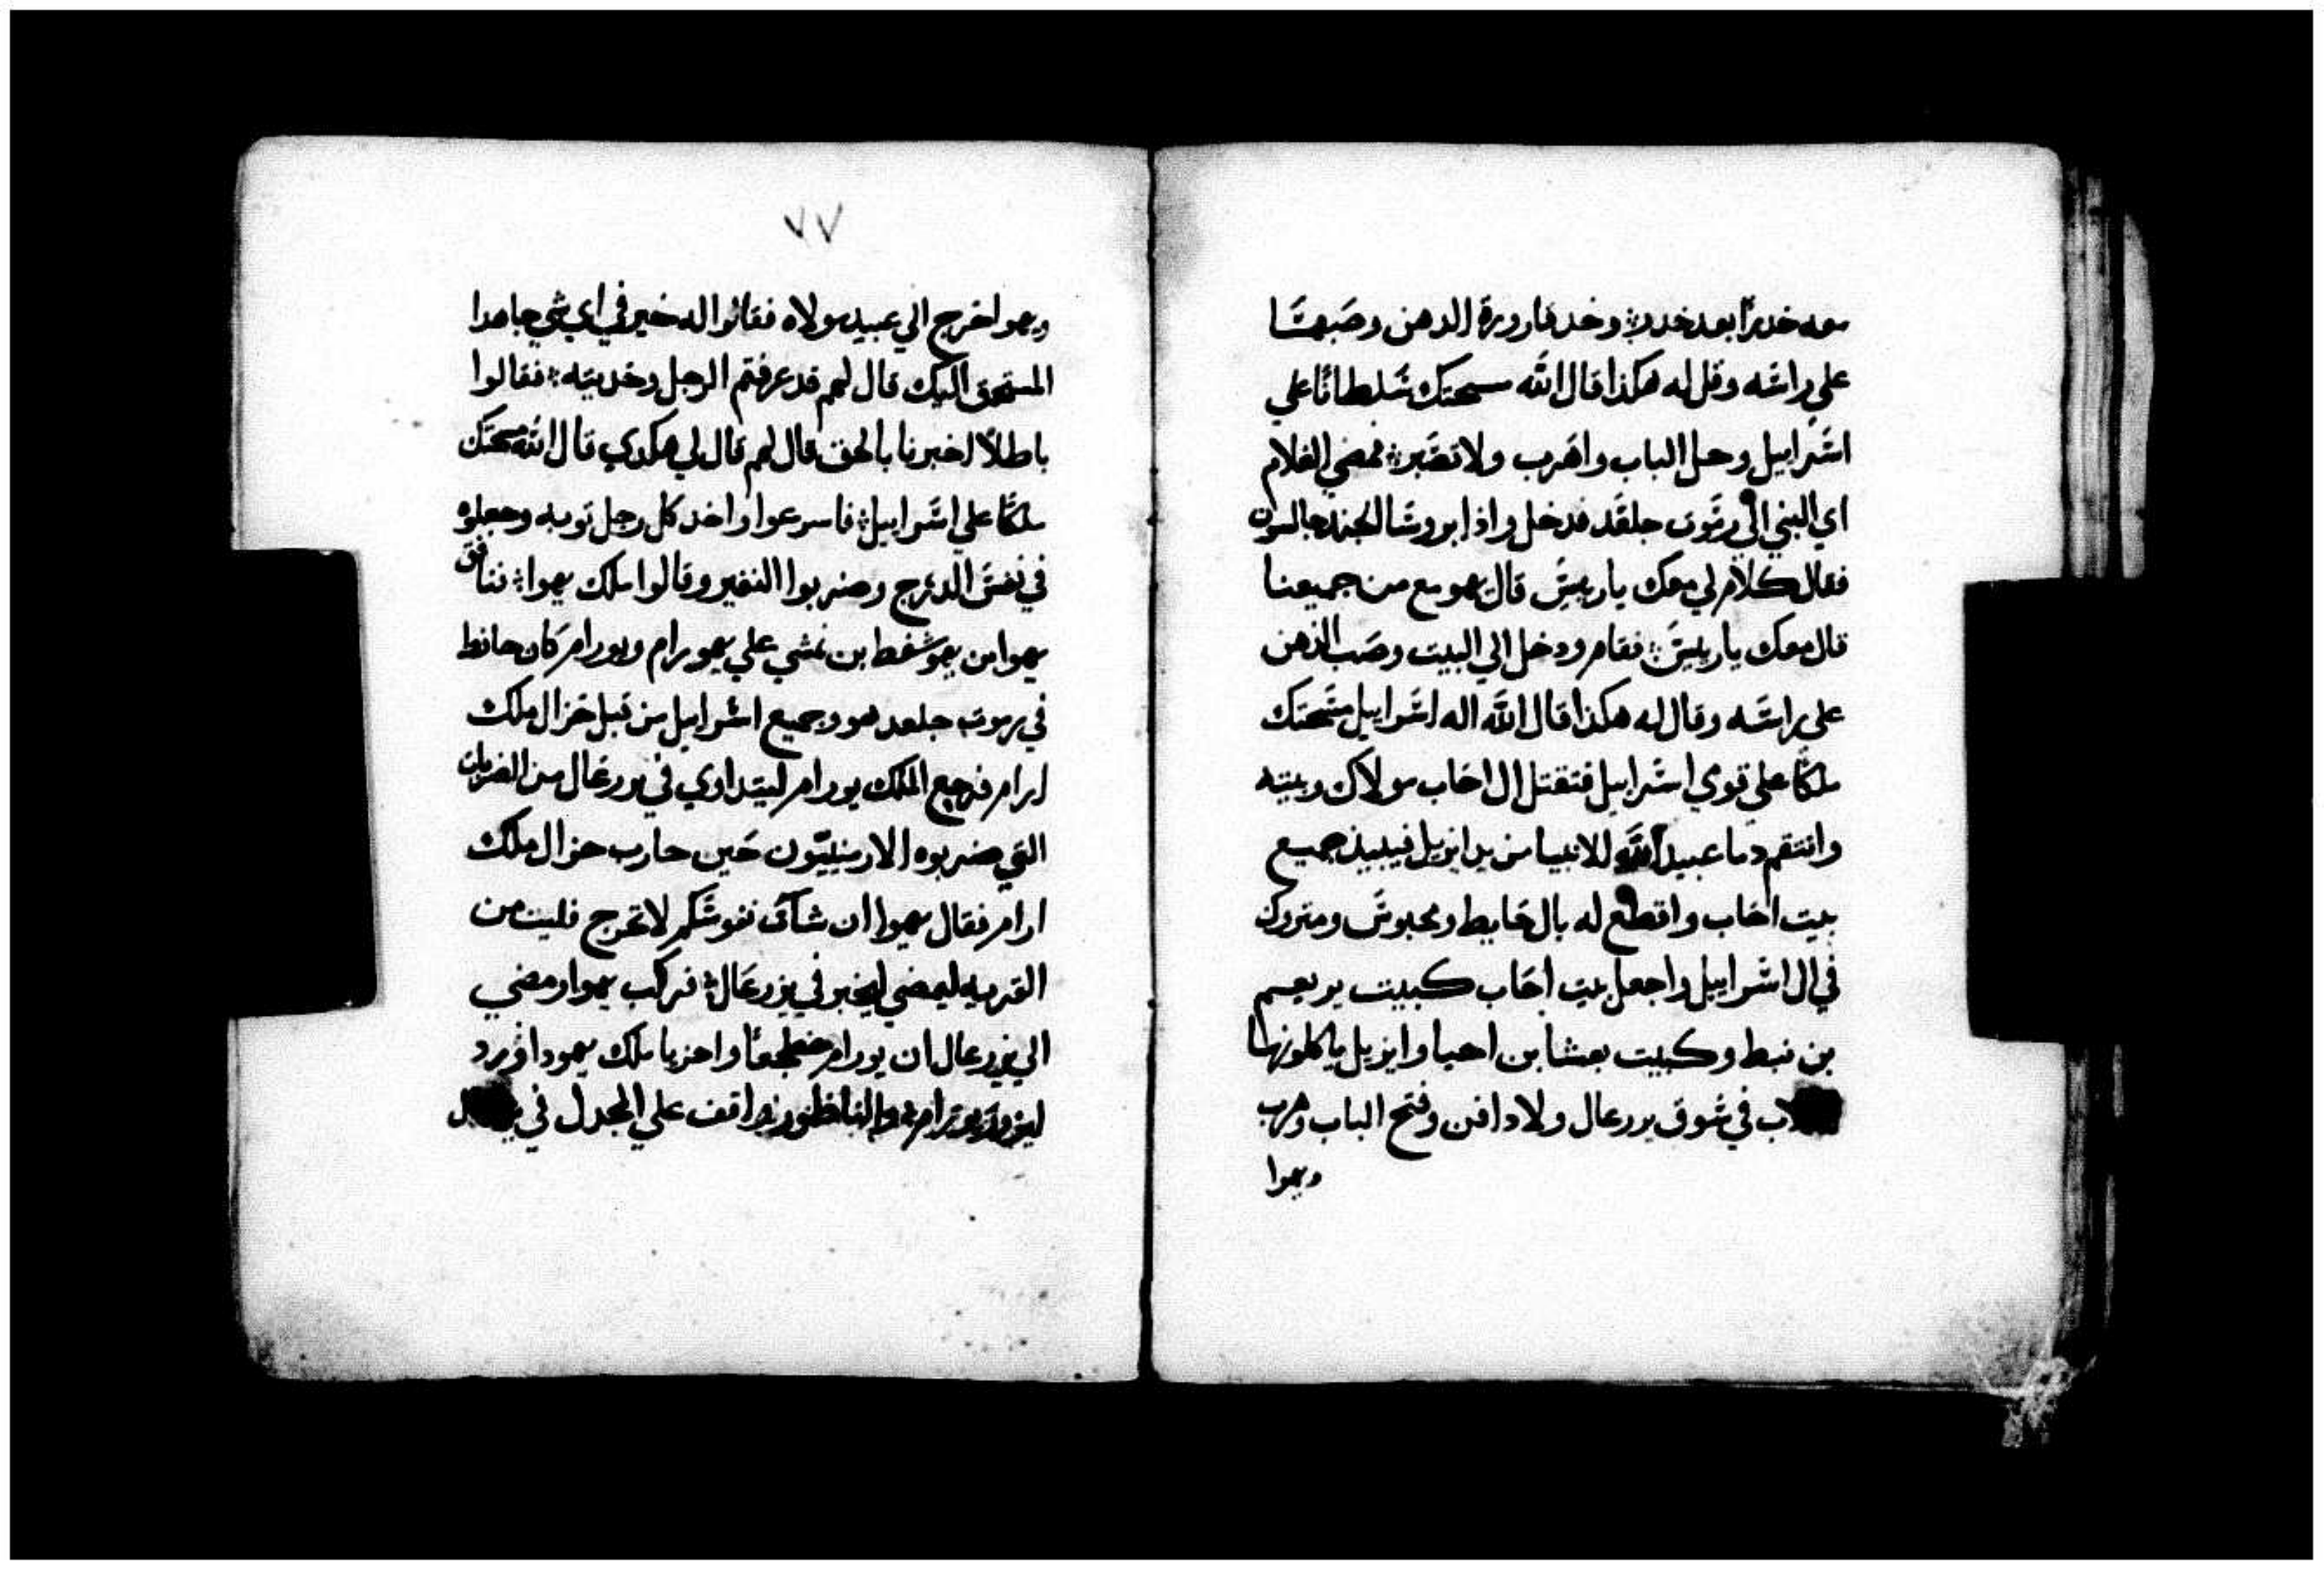 معه خدرًا بعد خدر؞ وخد قارورة الدهن وصبها
علي راسه وقل له هكذا قال الله مسحتك سلطانًا علي
اسراييل وحل الباب واهرب ولا تصبر؞ فمضي الغلام
اي النبي الي رموت جلعد فدخل واذا بروسا الجند جالسون
فقال كلام لي معك يا رييس قال يهو مع من جميعنا
قال معك يا رييس؞ فقام ودخل الي البيت وصب الدهن
علي راسه وقال له هكذا قال الله اله اسراييل مسحتك
ملكًا علي قوي اسراييل فتقتل ال احاب مولاك وبيته
وانتقم دما عبيد الله الانبيا من يد ايزبل فيبيد جميع
بيت احاب واقطع له بال حايط ومحبوس ومتروك
في ال اسراييل واجعل بيت احاب كبيت يربعم
بن نبط وكبيت بعشا بن احيا وايزبل ياكلونها
في سوق يزرعال ولا دافن وفتح الباب وهرب
ويهوا
٧٧
ويهوا خرج الي عبيد مولاه فقالوا له خير في اي شي جا هدا
اليك قال لهم قد عرفتم الرجل وحديثه؞ فقالوا
باطلًا اخبرنا بالحق قال لهم قال لي هكدي قال الله مسحتك
ملكًا علي اسراييل؞ فاسرعوا واخد كل رجل توبه وجعلوه
في نفس الدرج وضربوا النفير وقالوا ملك يهوا؞ فنافق
يهوا بن يهوشفط بن نمشي علي يهورام ويورام كان حافظ
في رموت جلعد هو وجميع اسراييل من قبل خزال ملك
ارام فرجع الملك يورام ليتداوي في يزرعال من الضربات
التي ضربوه الارمنييون حين حارب حزال ملك
ارام فقال يهوا ان شات نفوسكم لا تخرج فليت من
القريه ليمضي ليخبر في يزرعال؞ فركب يهوا ومضي
الي يزرعال ان يورام مضطجعًا واحزيا ملك يهودا ورد
ليزور يورام؞ والناظور واقف علي المجدل في